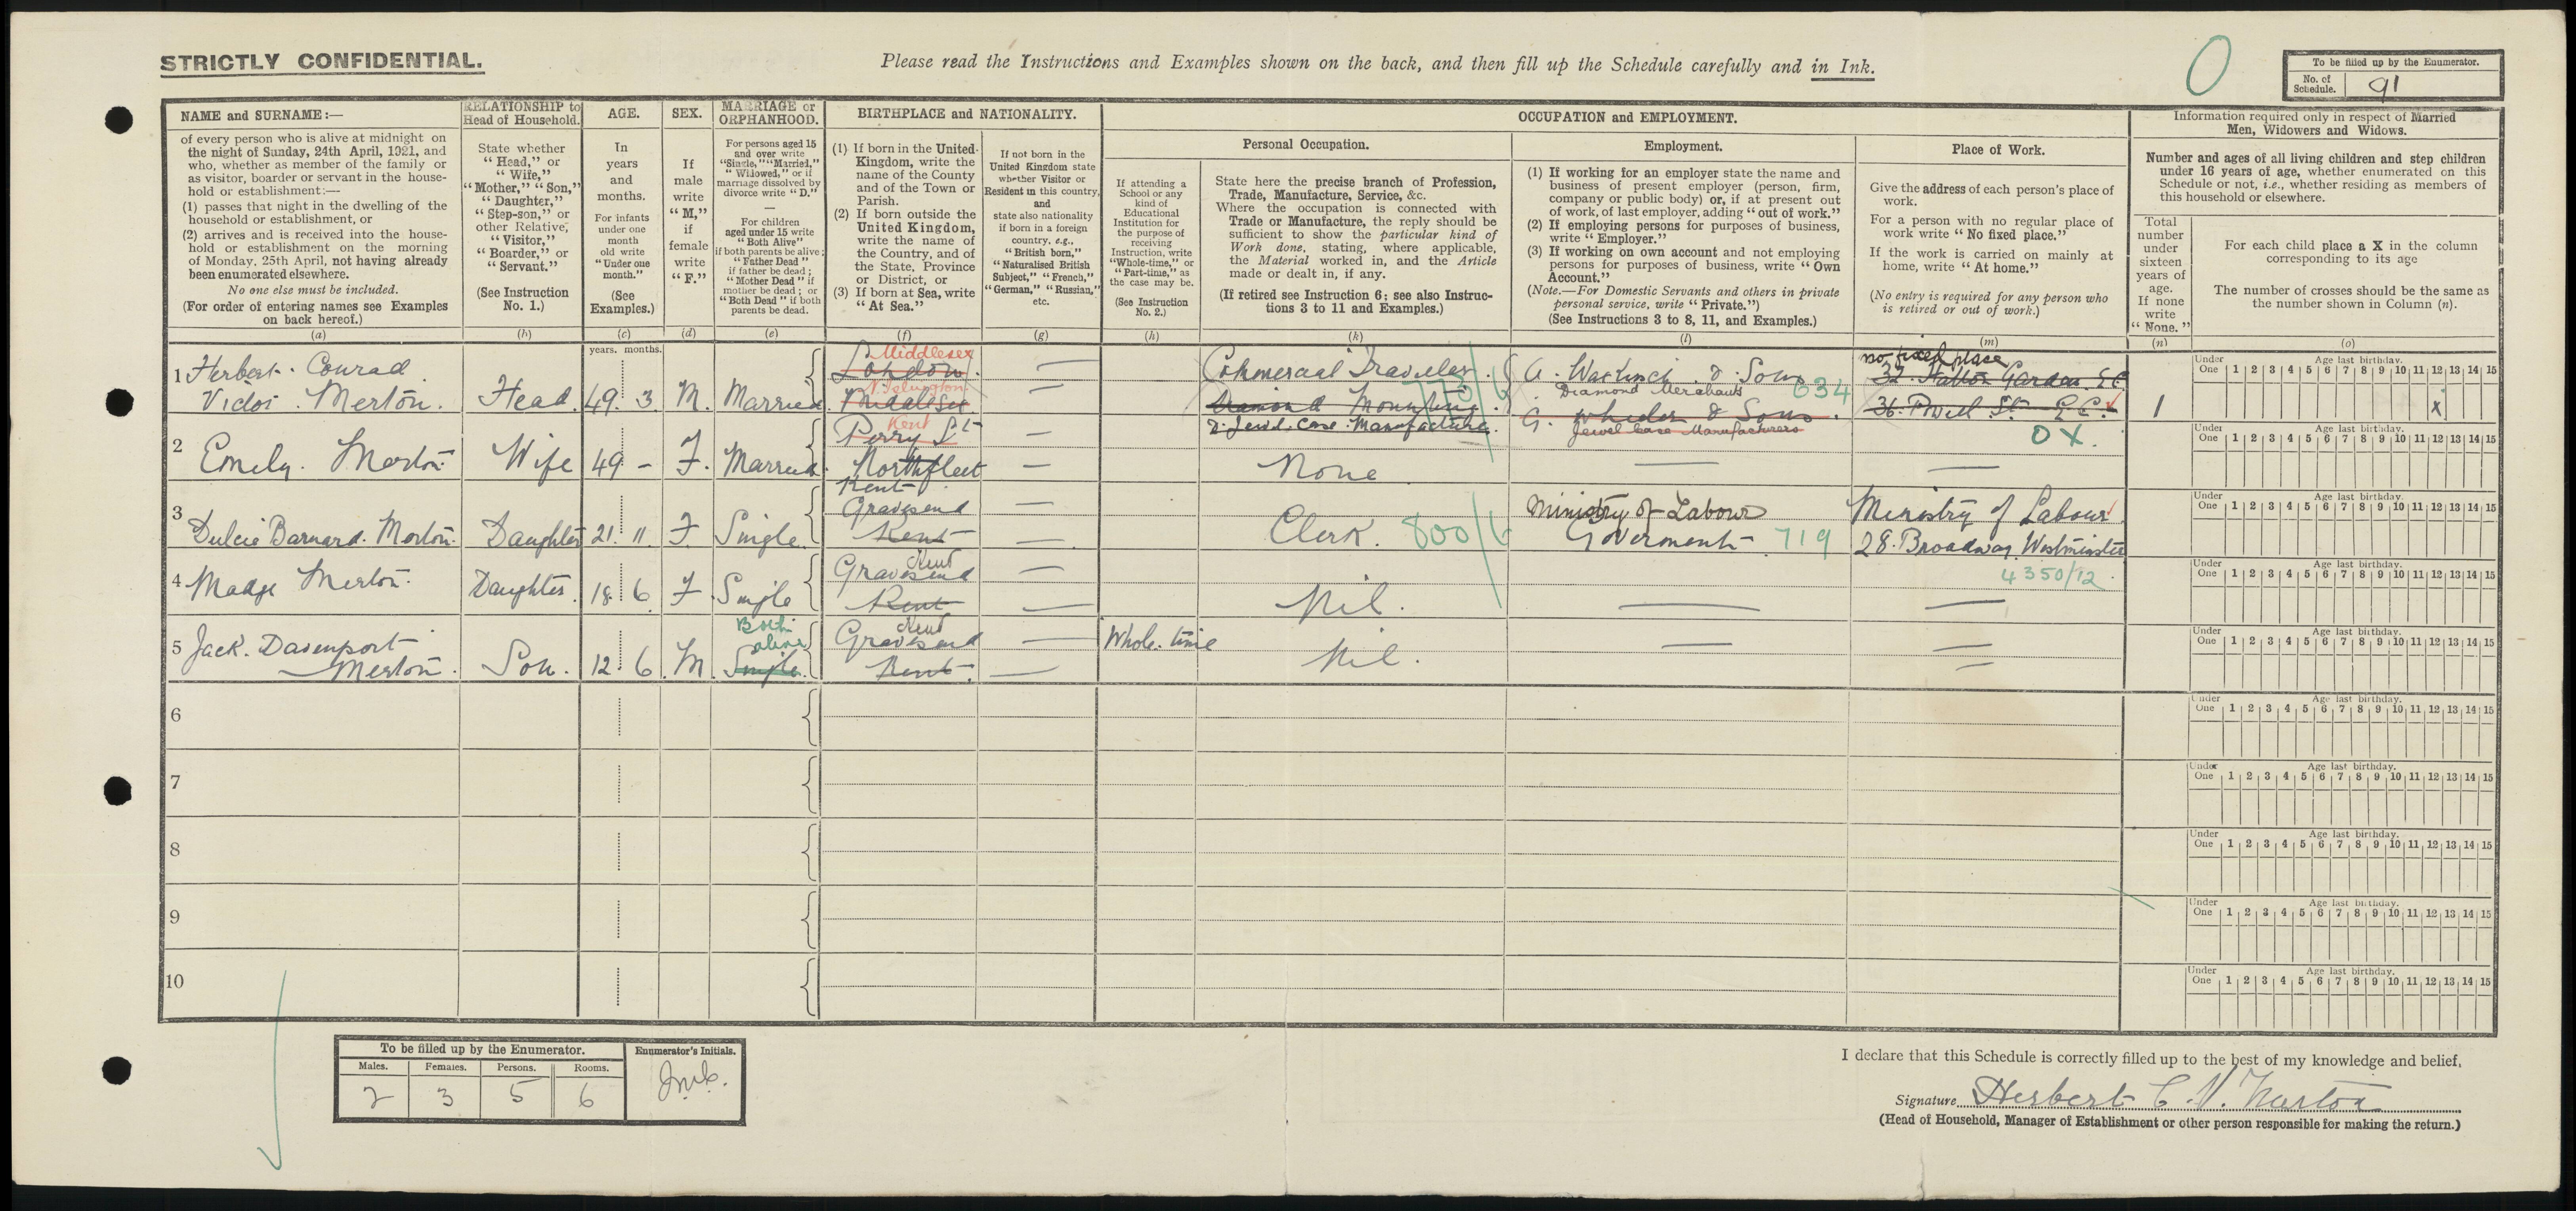 STRICTLY CONFIDENTIAL.
Please read the Instructions and Examples shown on the back, and then fill up the Schedule carefully and in Ink.
0
To be filled up by the Enumerator.
No. of Schedule. 91
NAME and SURNAME:—
of every person who is alive at midnight on
the night of Sunday, 24th April, 1921, and
who, whether as member of the family or
as visitor, boarder or servant in the house-
hold or establishment:—
(1) passes that night in the dwelling of the
household or establishment, or
(2) arrives and is received into the house-
hold or establishment on the morning
of Monday, 25th April, not having already
been enumerated elsewhere.
No one else must be included.
(For order of entering names see Examples
on back hereof.)
(a)
RELATIONSHIP to
Head of Household.
State whether
"Head," or
"Wife,"
"Mother," "Son,"
"Daughter,"
"Step-son," or
other Relative,
"Visitor,"
"Boarder," or
"Servant."
(See Instruction
No. 1.)
(b)
AGE.
In
years
and
months.
For infants
under one
month
old write
"Under one
month."
(See
Examples.)
(c)
years. months.
SEX.
If
male
write
"M,"
if
female
write
"F."
(d)
MARRIAGE or
ORPHANHOOD.
For persons aged 15
and over write
"Single," "Married,"
"Widowed," or if
marriage dissolved by
divorce write "D."
—
For children
aged under 15 write
"Both Alive"
if both parents be alive;
"Father Dead"
if father be dead;
"Mother Dead" if
mother be dead; or
"Both Dead" if both
parents be dead.
(e)
BIRTHPLACE and NATIONALITY.
(1) If born in the United
Kingdom, write the
name of the County
and of the Town or
Parish.
(2) If born outside the
United Kingdom,
write the name of
the Country, and of
the State, Province
or District, or
(3) If born at Sea, write
"At Sea."
(f)
If not born in the
United Kingdom state
whether Visitor or
Resident in this country,
and
state also nationality
if born in a foreign
country, e.g.,
"British born,"
"Naturalised British
Subject," "French,"
"German," "Russian,"
etc.
(g)
OCCUPATION and EMPLOYMENT.
Personal Occupation.
If attending a
School or any
kind of
Educational
Institution for
the purpose of
receiving
Instruction, write
"Whole-time," or
"Part-time," as
the case may be.
(See Instruction
No. 2.)
(h)
State here the precise branch of Profession,
Trade, Manufacture, Service, &c.
Where the occupation is connected with
Trade or Manufacture, the reply should be
sufficient to show the particular kind of
Work done, stating, where applicable,
the Material worked in, and the Article
made or dealt in, if any.
(If retired see Instruction 6; see also Instruc-
tions 3 to 11 and Examples.)
(k)
Employment.
(1) If working for an employer state the name and
business of present employer (person, firm,
company or public body) or, if at present out
of work, of last employer, adding "out of work."
(2) If employing persons for purposes of business,
write "Employer."
(3) If working on own account and not employing
persons for purposes of business, write "Own
Account."
(Note.—For Domestic Servants and others in private
personal service, write "Private.")
(See Instructions 3 to 8, 11, and Examples.)
(l)
Place of Work.
Give the address of each person's place of
work.
For a person with no regular place of
work write "No fixed place."
If the work is carried on mainly at
home, write "At home."
(No entry is required for any person who
is retired or out of work.)
(m)
Information required only in respect of Married
Men, Widowers and Widows.
Number and ages of all living children and step children
under 16 years of age, whether enumerated on this
Schedule or not, i.e., whether residing as members of
this household or elsewhere.
Total
number
under
sixteen
years of
age.
If none
write
"None."
(n)
For each child place a X in the column
corresponding to its age
The number of crosses should be the same as
the number shown in Column (n).
(o)
Under One Age last birthday. 1 2 3 4 5 6 7 8 9 10 11 12 13 14 15
1 Herbert. Conrad
Victor. Merton. Head. 49. 3 M. Married
Middlesex
London.
Islington
Middlesex
Commercial Traveller.
Diamond Mounting.
D. Jewel Case Manufacture.
773/6
& Sons
Diamond Merchants 034
G. Wheeler & Sons.
Jewel Case Manufacturers
no fixed place
32. Hatton Garden E.C.
36. Powell St. E.C.
1 X
0 X.
2 Emily. Merton Wife 49 - F. Married.
Kent
Perry St
Northfleet
Kent
None
3 Dulcie Barnard. Merton. Daughter 21. 11 F Single
Gravesend
Kent
Clerk. 800/6
Ministry of Labour
Goverment 719
Ministry of Labour
28. Broadway Westminster
4350/12
4 Madge Merton. Daughter. 18 6 F Single
Gravesend Kent
Kent
Nil.
5 Jack. Davenport
Merton. Son. 12 6 M.
Both
alive
Single
Gravesend Kent
Kent
Whole. time
Nil.
6
7
8
9
10
To be filled up by the Enumerator.
Males. Females. Persons. Rooms.
2 3 5 6
Enumerator's Initials.
I declare that this Schedule is correctly filled up to the best of my knowledge and belief,
Signature Herbert C. V. Merton
(Head of Household, Manager of Establishment or other person responsible for making the return.)